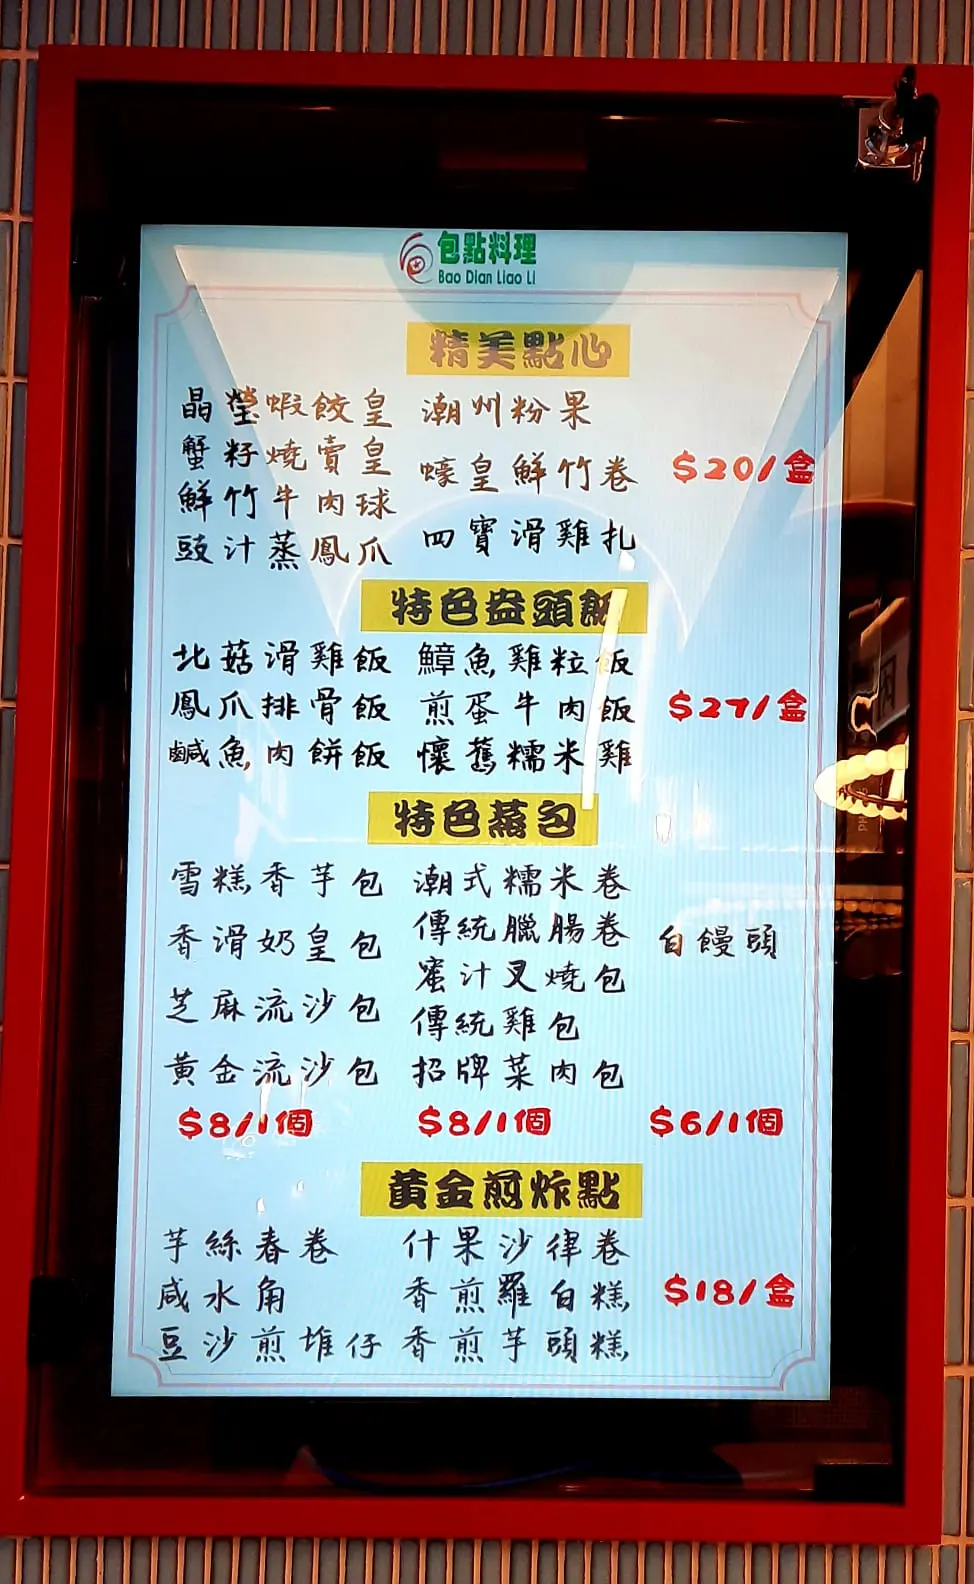 包點料理
Bao Dian Liao Li
精美點心
晶瑩蝦餃皇
蟹籽燒賣皇
鮮竹牛肉球
豉汁蒸鳳爪
潮州粉果
蠔皇鮮竹卷
四寶滑雞扎
$20/盒
特色盅頭飯
北菇滑雞飯
鳳爪排骨飯
鹹魚肉餅飯
鱆魚雞粒飯
煎蛋牛肉飯
懷舊糯米雞
$27/盒
特色蒸包
雪糕香芋包
香滑奶皇包
芝麻流沙包
黃金流沙包
$8/1個
潮式糯米卷
傳統臘腸卷
蜜汁叉燒包
傳統雞包
招牌菜肉包
$8/1個
白饅頭
$6/1個
黃金煎炸點
芋絲春卷
咸水角
豆沙煎堆仔
什果沙律卷
香煎羅白糕
香煎芋頭糕
$18/盒